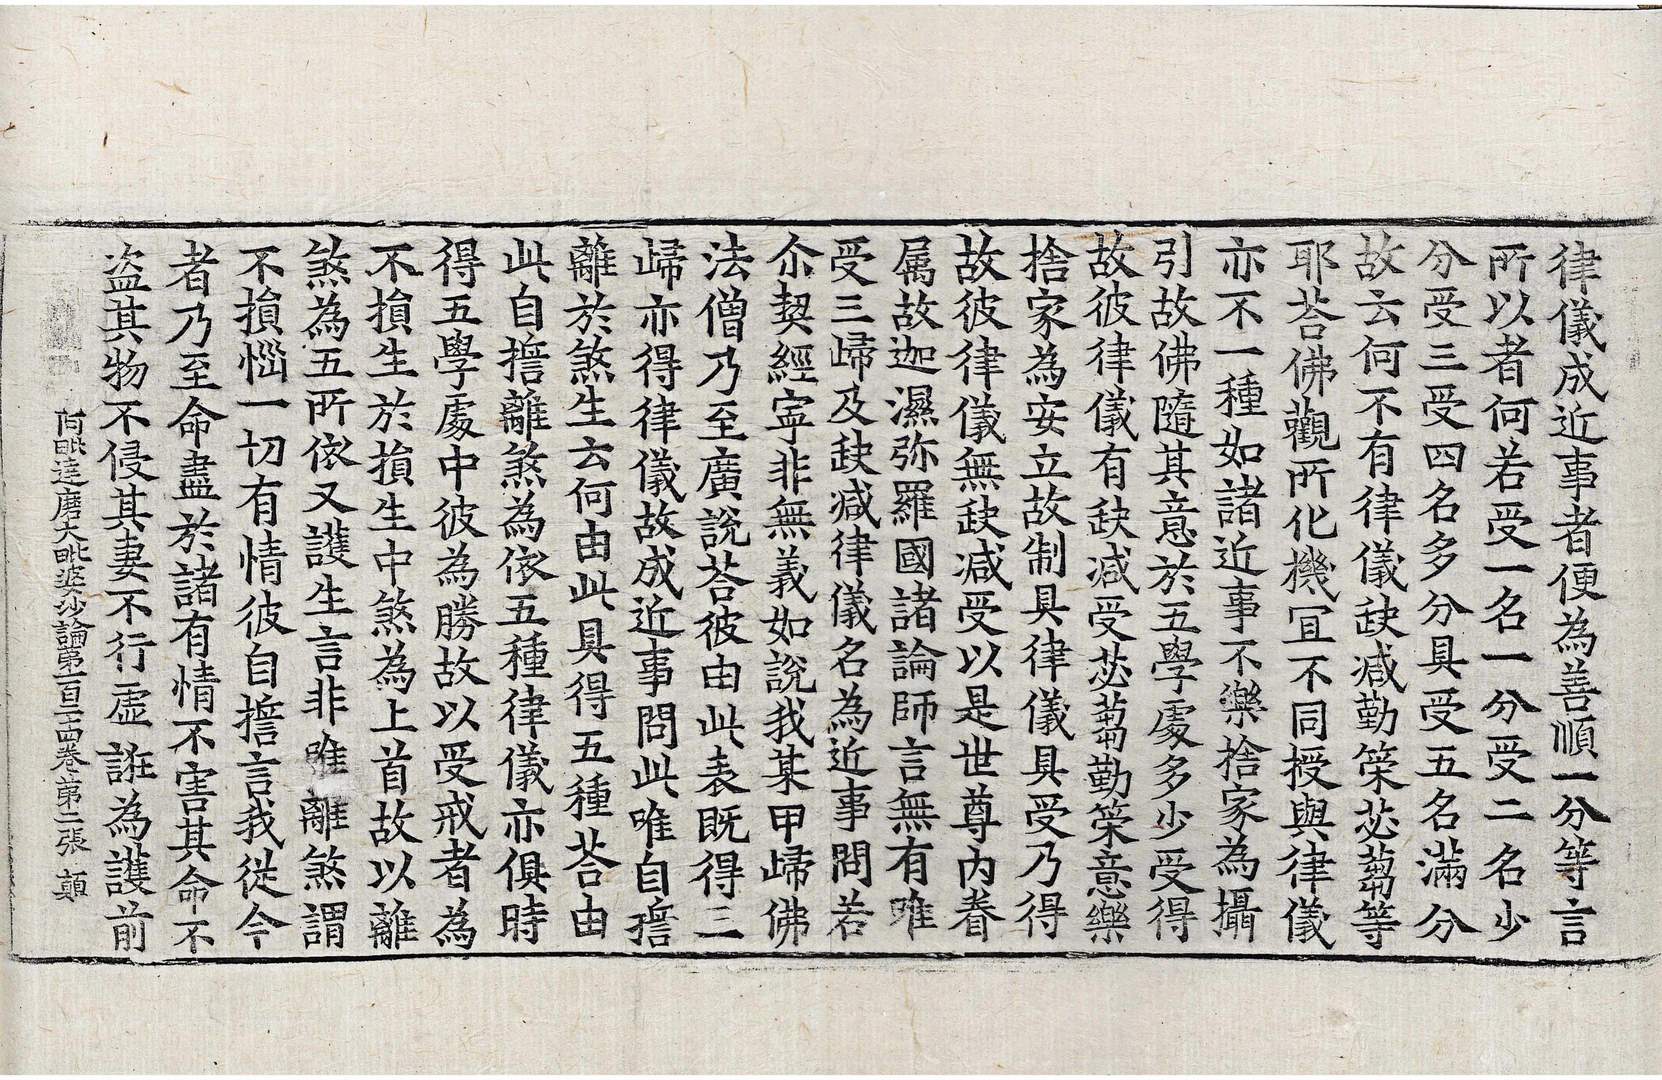 律儀成近事者便為善順一分等言
所以者何若受一名一分受二名少
分受三受四名多分具受五名滿分
故云何不有律儀缺减勤策苾蒭等
耶荅佛觀所化機冝不同授與律儀
亦不一種如諸近事不樂捨家為攝
引故佛隨其意於五學處多少受得
故彼律儀有缺减受苾蒭勤策意樂
捨家為安立故制具律儀具受乃得
故彼律儀無缺减受以是世尊內眷
属故迦濕弥羅國諸論師言無有唯
受三歸及缺减律儀名為近事問若
尒契經寜非無義如說我某甲歸佛
法僧乃至廣說荅彼由此表既得三
歸亦得律儀故成近事問此唯自擔
離於煞生云何由此具得五種荅由
此自擔離煞為依五種律儀亦俱時
得五學處中彼為勝故以受戒者為
不損生於損生中煞為上首故以離
煞為五所依又護生言非唯離煞謂
不損惱一切有情彼自擔言我從今
者乃至命盡於諸有情不害其命不
盗其物不侵其妻不行虛誑為護前
阿毗達磨大毗婆沙論第一百二十四卷 第二張 顛